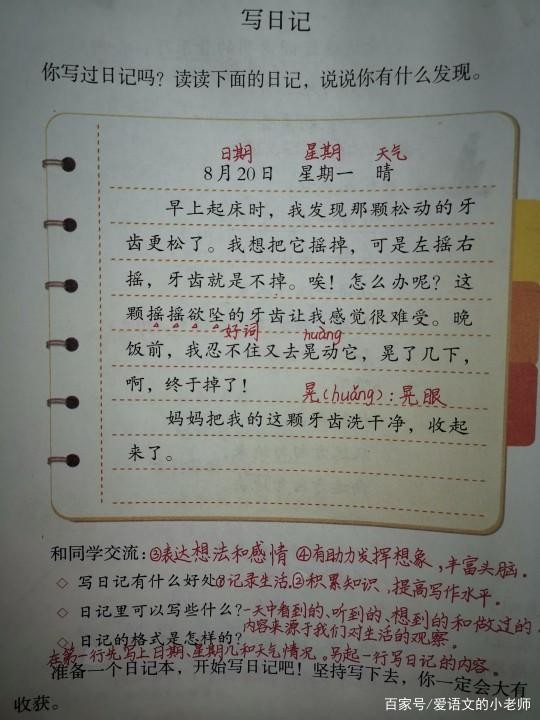 写日记
你写过日记吗？读读下面的日记，说说你有什么发现。
日期 星期 天气
8月20日 星期一 晴
早上起床时，我发现那颗松动的牙
齿更松了。我想把它摇掉，可是左摇右
摇，牙齿就是不掉。唉！怎么办呢？这
颗摇摇欲坠的牙齿让我感觉很难受。晚
好词 huàng
饭前，我忍不住又去晃动它，晃了几下，
啊，终于掉了！ 晃(huǎng)：晃眼
妈妈把我的这颗牙齿洗干净，收起
来了。
和同学交流：③表达想法和感情 ④有助力发挥想象，丰富头脑。
◇ 写日记有什么好处①记录生活。②积累知识，提高写作水平。
◇ 日记里可以写些什么？一天中看到的、听到的、想到的和做过的
内容来源于我们对生活的观察。
◇ 日记的格式是怎样的？
在第一行先写上日期、星期几和天气情况。另起一行写日记的内容。
准备一个日记本，开始写日记吧！坚持写下去，你一定会大有
收获。
百家号/爱语文的小老师